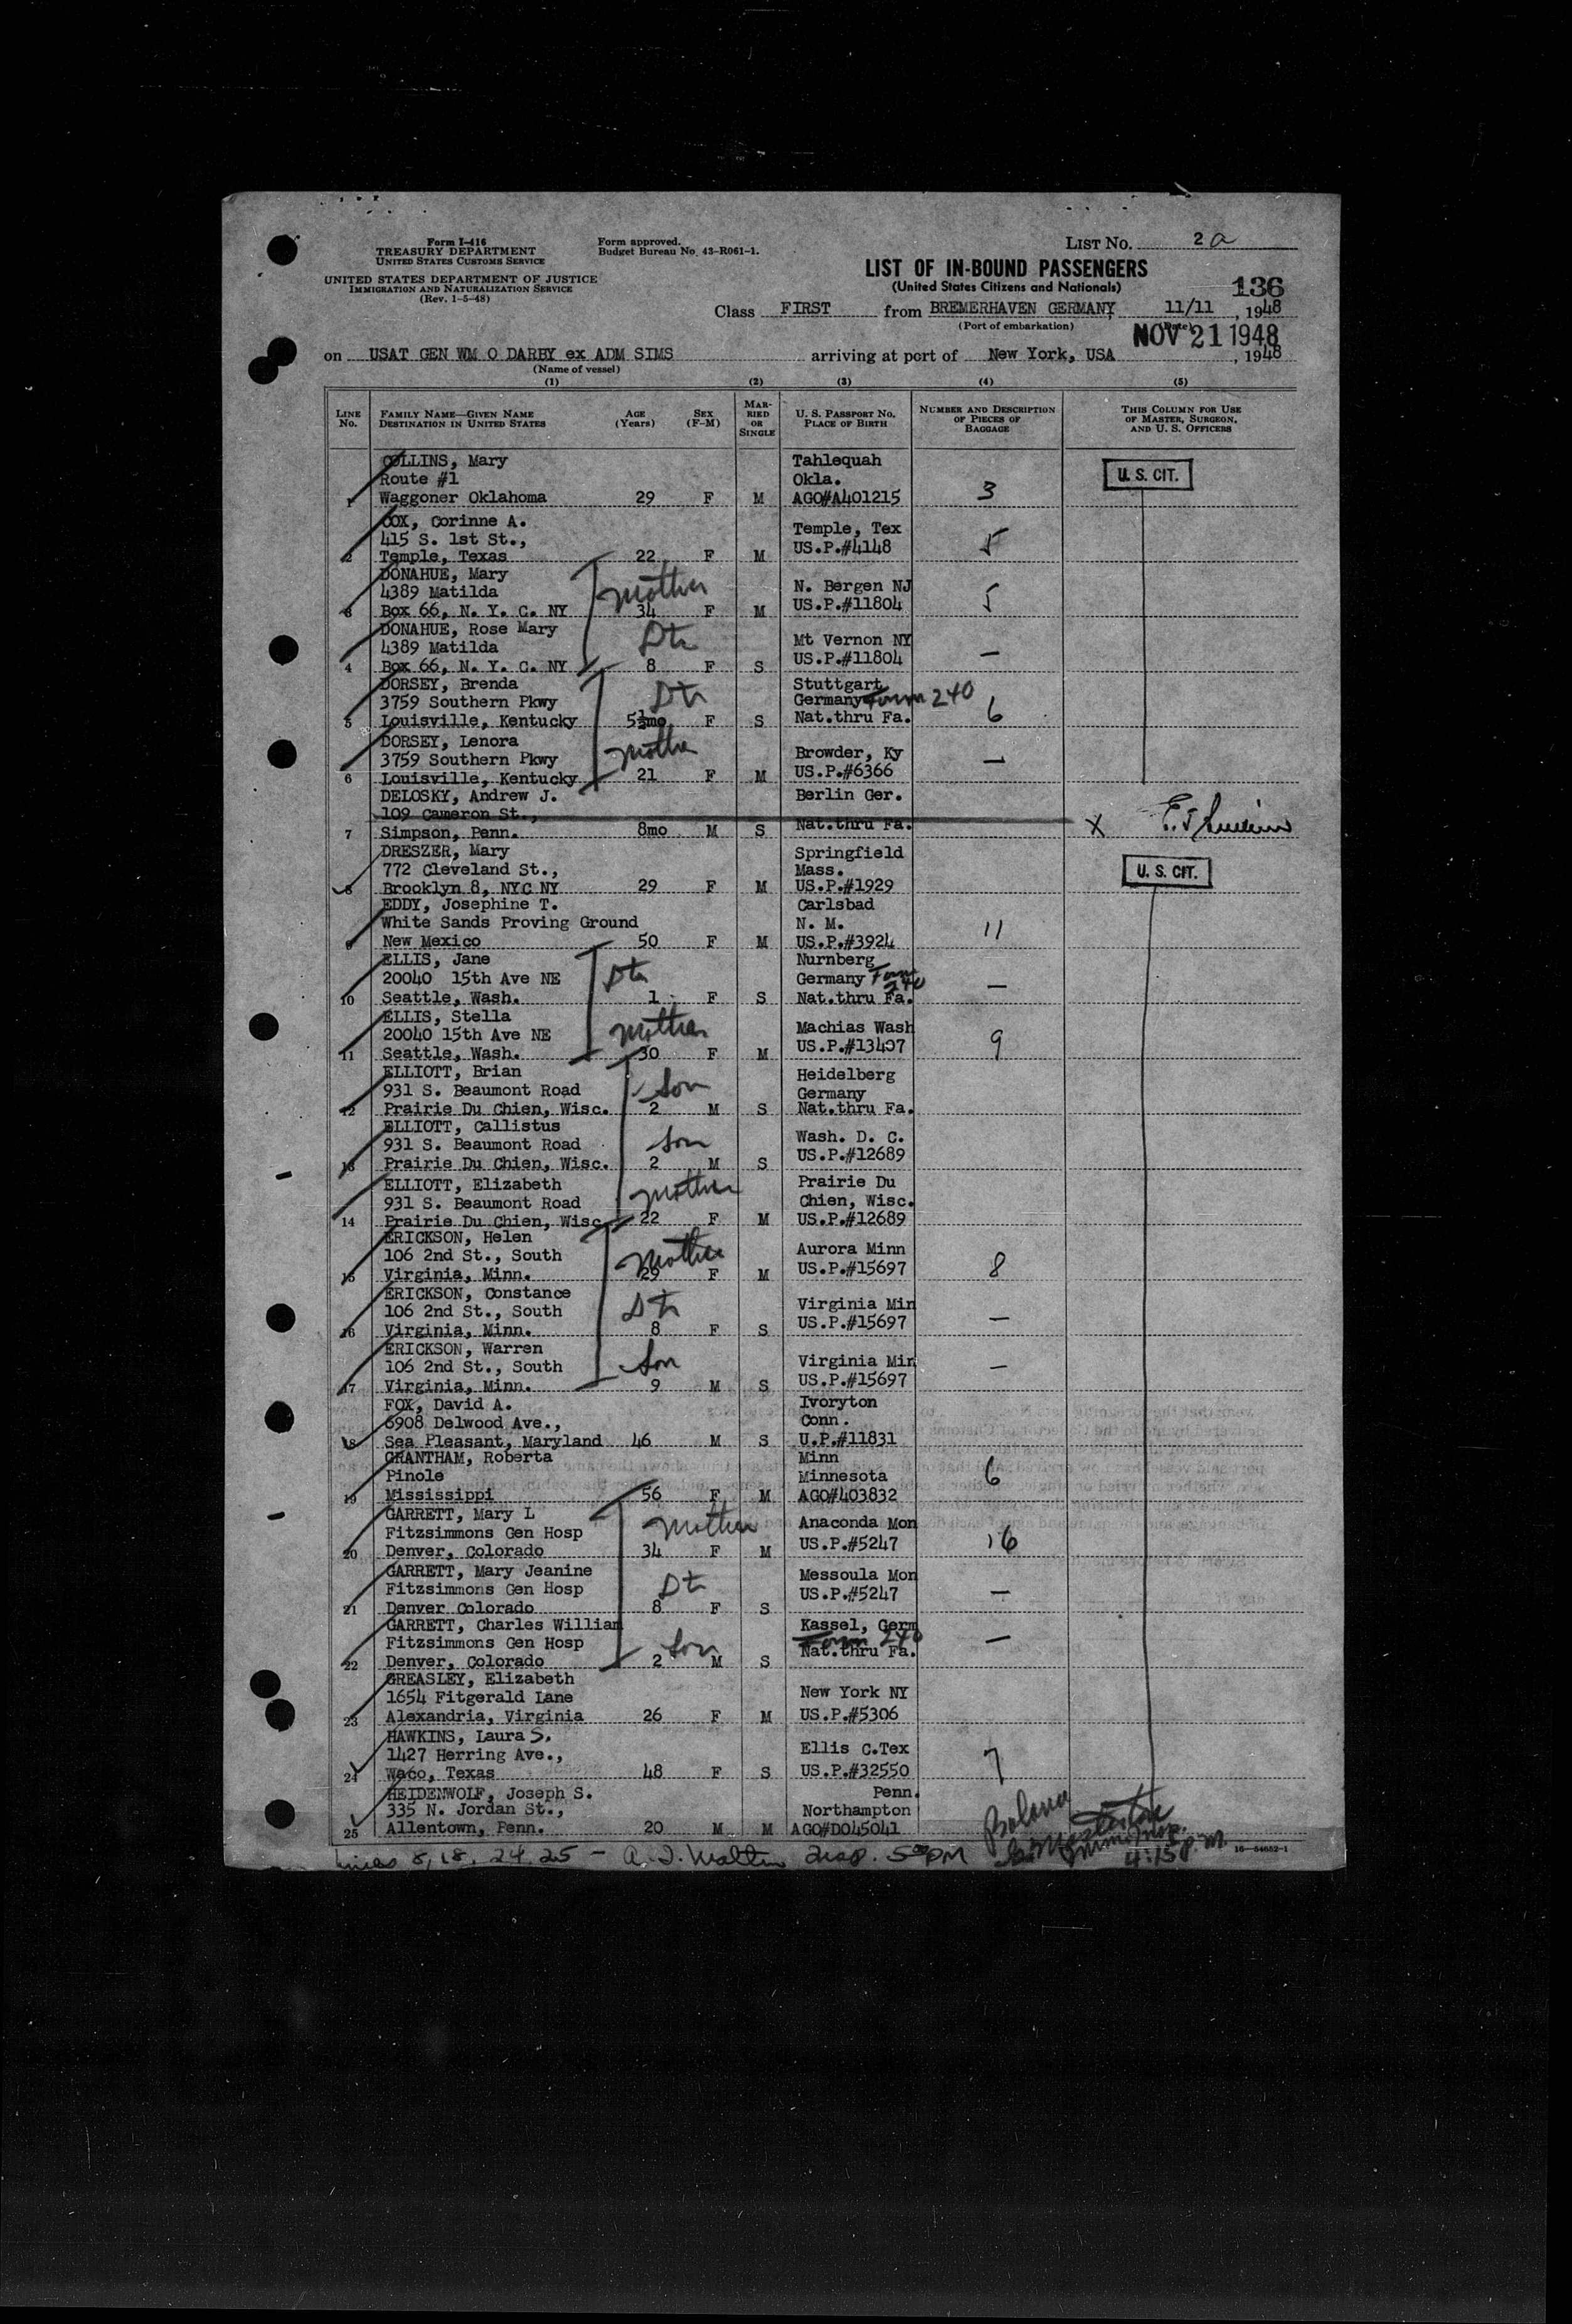 Form I-416
TREASURY DEPARTMENT
UNITED STATES CUSTOMS SERVICE
UNITED STATES DEPARTMENT OF JUSTICE
IMMIGRATION AND NATURALIZATION SERVICE
(Rev. 1-5-48)
Form approved.
Budget Bureau No. 43-R061-1.
LIST NO. 2 a
LIST OF IN-BOUND PASSENGERS
(United States Citizens and Nationals)
136
Class FIRST from BREMERHAVEN GERMANY, 11/11, 1948
(Port of embarkation) (Date)
NOV 21 1948
on USAT GEN WM O DARBY ex ADM SIMS arriving at port of New York, USA, 1948
(Name of vessel)
(1) (2) (3) (4) (5)
LINE NO. FAMILY NAME—GIVEN NAME DESTINATION IN UNITED STATES AGE (Years) SEX (F-M) MARRIED OR SINGLE U. S. PASSPORT NO. PLACE OF BIRTH NUMBER AND DESCRIPTION OF PIECES OF BAGGAGE THIS COLUMN FOR USE OF MASTER, SURGEON, AND U. S. OFFICERS
COLLINS, Mary Tahlequah
Route #1 Okla. U. S. CIT.
1 Waggoner Oklahoma 29 F M AGO#A401215 3
COX, Corinne A. Temple, Tex
415 S. 1st St.,
2 Temple, Texas 22 F M US.P.#4148 5
DONAHUE, Mary Mother
4389 Matilda N. Bergen NJ
3 Box 66, N. Y. C. NY 34 F M US.P.#11804 5
DONAHUE, Rose Mary Dtr
4389 Matilda Mt Vernon NY
4 Box 66, N. Y. C. NY 8 F S US.P.#11804 —
DORSEY, Brenda Dtr Stuttgart
3759 Southern Pkwy Germany Form 240
5 Louisville, Kentucky 5½mo. F S Nat.thru Fa. 6
DORSEY, Lenora Mother
3759 Southern Pkwy Browder, Ky
6 Louisville, Kentucky 21 F M US.P.#6366 —
DELOSKY, Andrew J. Berlin Ger.
109 Cameron St.,
7 Simpson, Penn. 8mo M S Nat.thru Fa. X
DRESZER, Mary Springfield
772 Cleveland St., Mass. U. S. CIT.
8 Brooklyn 8, NYC NY 29 F M US.P.#1929
EDDY, Josephine T. Carlsbad
White Sands Proving Ground N. M.
9 New Mexico 50 F M US.P.#3924 11
ELLIS, Jane Dtr Nurnberg
20040 15th Ave NE Germany Form 240
10 Seattle, Wash. 1 F S Nat.thru Fa. —
ELLIS, Stella Mother
20040 15th Ave NE Machias Wash
11 Seattle, Wash. 30 F M US.P.#13407 9
ELLIOTT, Brian Son Heidelberg
931 S. Beaumont Road Germany
12 Prairie Du Chien, Wisc. 2 M S Nat.thru Fa.
ELLIOTT, Callistus Son
931 S. Beaumont Road Wash. D. C.
13 Prairie Du Chien, Wisc. 2 M S US.P.#12689
ELLIOTT, Elizabeth Mother Prairie Du
931 S. Beaumont Road Chien, Wisc.
14 Prairie Du Chien, Wisc. 22 F M US.P.#12689
ERICKSON, Helen Mother
106 2nd St., South Aurora Minn
15 Virginia, Minn. 29 F M US.P.#15697 8
ERICKSON, Constance Dtr
106 2nd St., South Virginia Min
16 Virginia, Minn. 8 F S US.P.#15697 —
ERICKSON, Warren Son
106 2nd St., South Virginia Min
17 Virginia, Minn. 9 M S US.P.#15697 —
FOX, David A. Ivoryton
6908 Delwood Ave., Conn.
18 Sea Pleasant, Maryland 46 M S U.P.#11831
GRANTHAM, Roberta Minn
Pinole Minnesota
19 Mississippi 56 F M AGO#403832 6
GARRETT, Mary L Mother
Fitzsimmons Gen Hosp Anaconda Mon
20 Denver, Colorado 34 F M US.P.#5247 16
GARRETT, Mary Jeanine Dtr
Fitzsimmons Gen Hosp Messoula Mon
21 Denver Colorado 8 F S US.P.#5247 —
GARRETT, Charles William Son Kassel, Germ
Fitzsimmons Gen Hosp Form 240
22 Denver, Colorado 2 M S Nat.thru Fa. —
GREASLEY, Elizabeth
1654 Fitgerald Lane New York NY
23 Alexandria, Virginia 26 F M US.P.#5306
HAWKINS, Laura S.
1427 Herring Ave., Ellis C.Tex
24 Waco, Texas 48 F S US.P.#32550 7
HEIDENWOLF, Joseph S. Penn.
335 N. Jordan St., Northampton
25 Allentown, Penn. 20 M M AGO#D045041
Balance
Immi Insp.
4:15 p.m.
Lines 8, 18, 24, 25 - Insp. 5 00 PM
16—54652-1